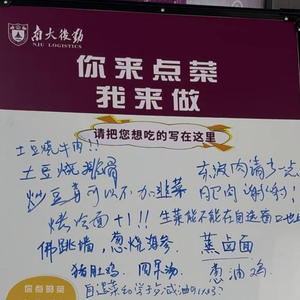 南大後勤
NJU LOGISTICS
你来点菜
我来做
请把您想吃的写在这里
土豆烧牛肉!!
土豆烧排骨
东坡肉请多一点
肥肉谢谢!
炒豆芽可以不加韭菜
烤冷面+1!!
生菜能不能在自选窗口
佛跳墙,葱烧海参
蒸卤面
猪肚鸡
葱油鸡
自选菜